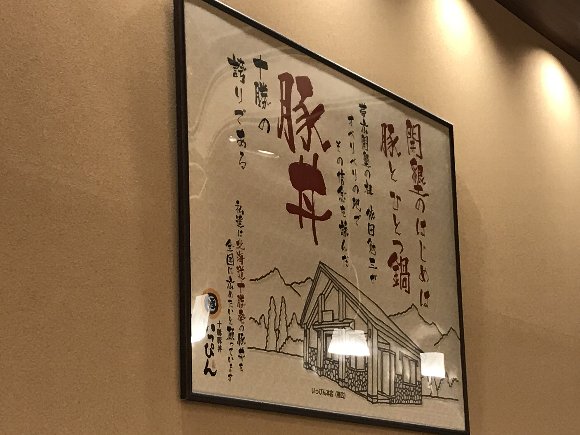 開墾のはじめは
豚とひとつ鍋
晩成社の依田勉三が
オベリベリの地で
その信念を詠んだ
豚丼
十勝の
誇りである
私達は北海道十勝の豚丼を
全国に広めたいと願っています
十勝豚丼
いっぴん
いっぴん本店（帯広）